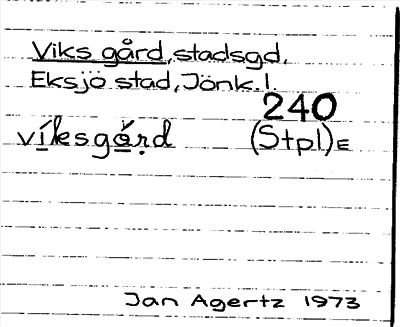 Viks gård, stadsgd,
Eksjö stad, Jönk.l.
240
víksgård (Stpl)E
Jan Agertz 1973